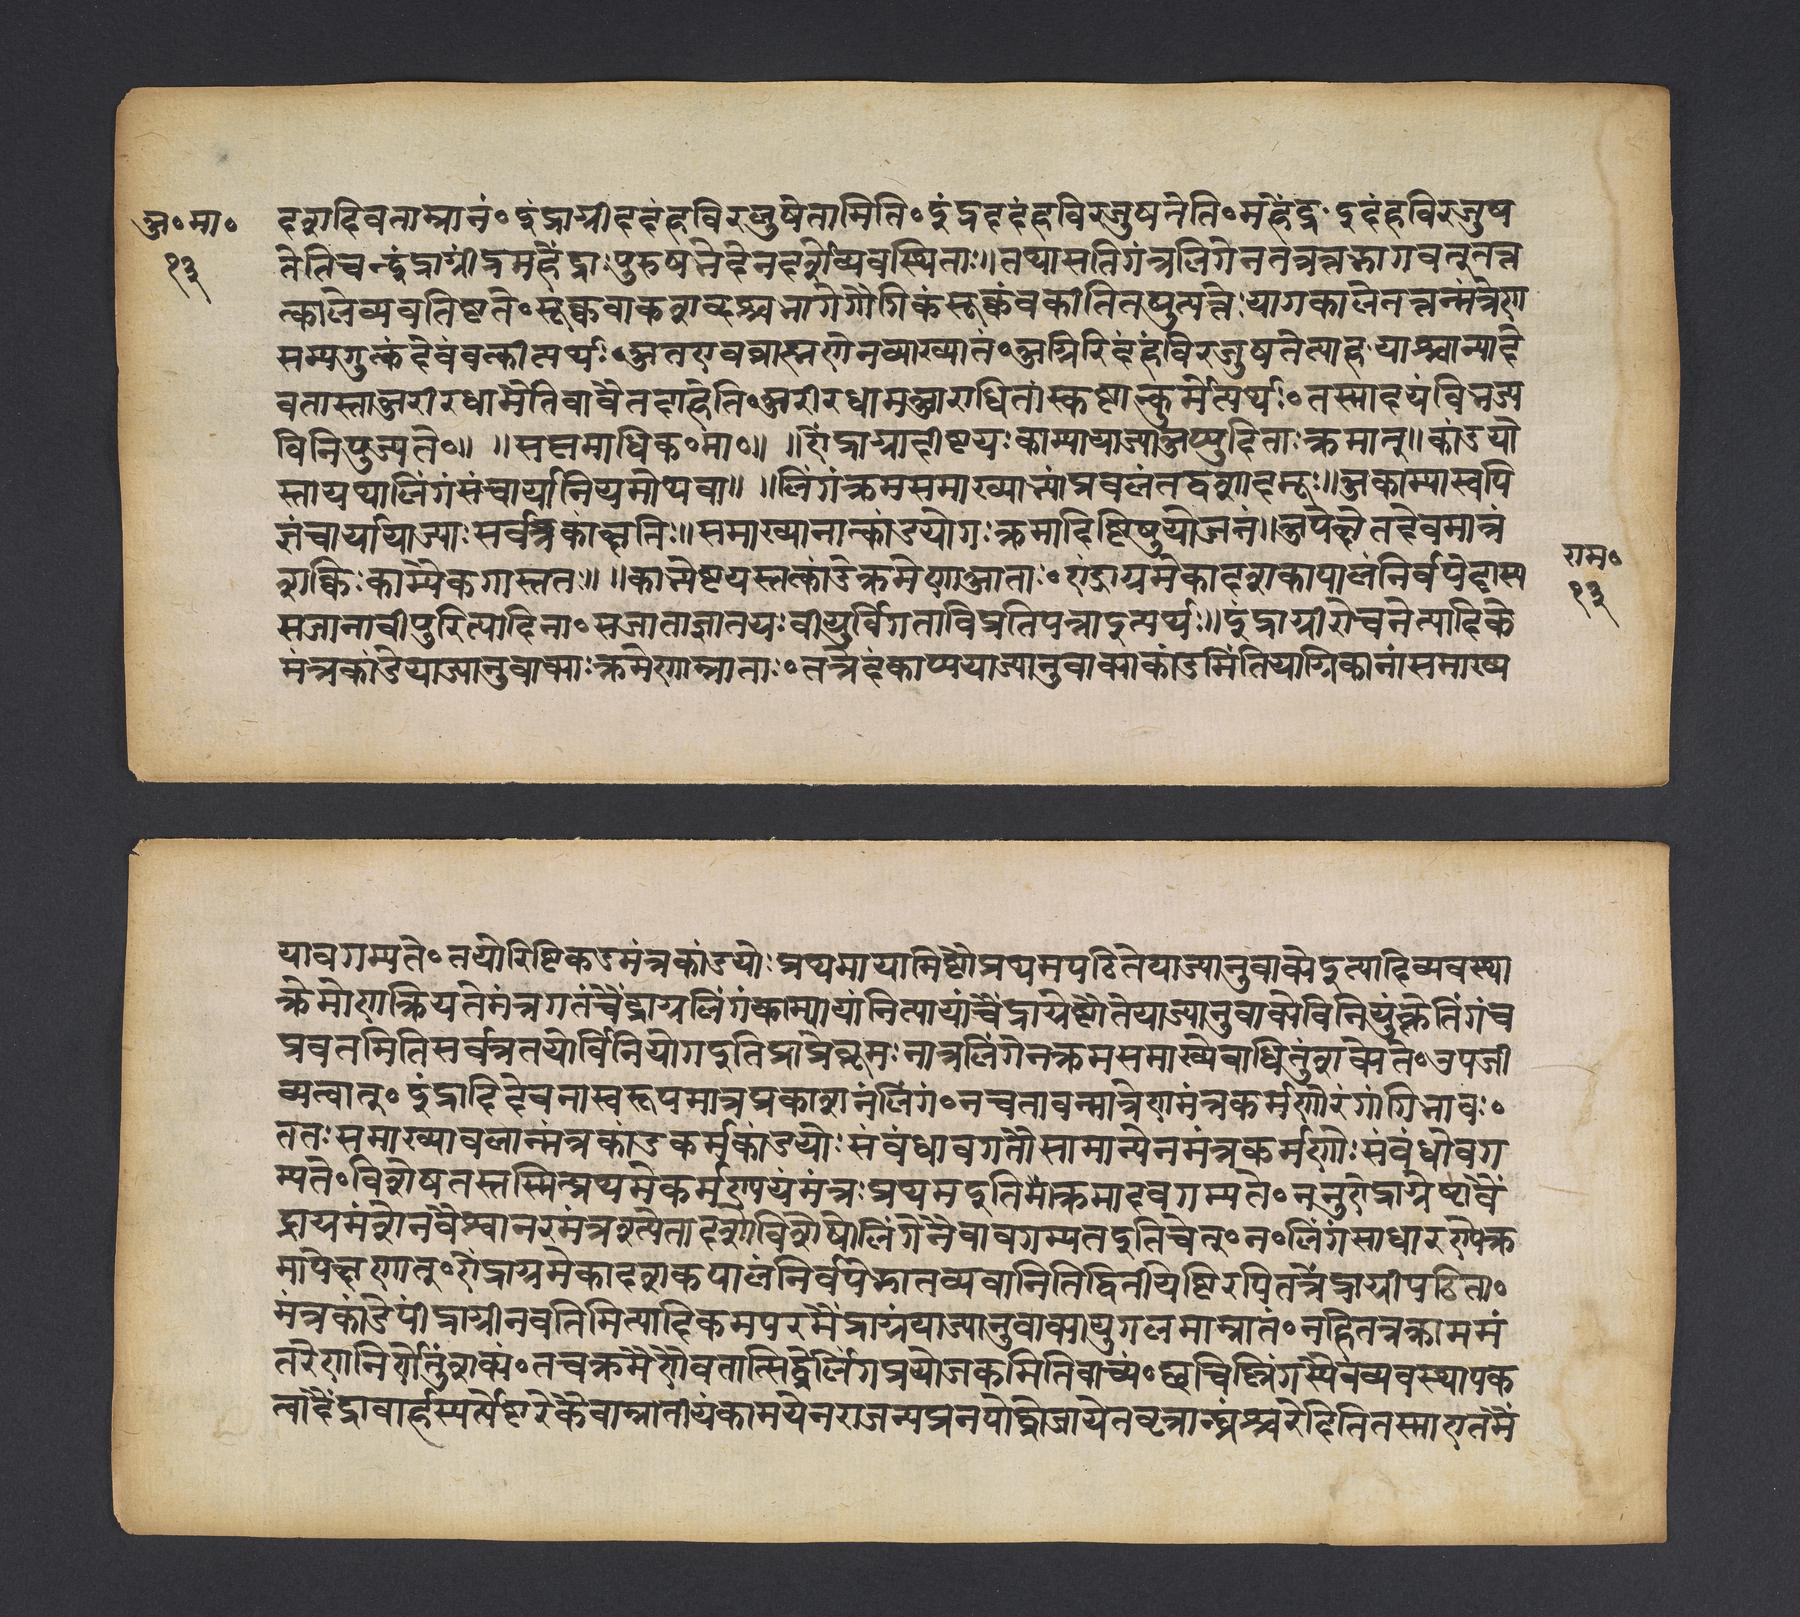 अ॰मा॰
१३
दशदेवताम्नानं॰ इंद्राग्नीइदंहविरजुषेतामिति॰ इंद्रइदंहविरजुषतेति॰ महेंद्रइदंहविरजुष
तेतिचन्द्रेंद्राग्नींद्रमहेंद्राःपुरुषभेदेनदर्शेव्यवस्थिताः॥तथासतिगंत्रलिंगेनतत्रतत्रभागवत्तत्त
त्कालेव्यवतिष्टते॰सूक्तवाकशब्दश्चभागेयौगिकंसूक्तंवक्तीतितद्युत्पत्तेःयागकालेतत्तन्मंत्रेण
सम्यगुक्तंदेवंवक्तीत्यर्थः॰अतएवब्राह्मणेनव्याख्यातं॰अग्निरिदंहविरजुषतेत्याहयाश्चान्यादे
वतास्ताअरीरधामेतिवावैतदाहेति॰अरीरधामआराधितांस्कष्टाल्कुर्मेत्यर्थः॰तस्मादयंविभज्य
विनियुज्यते॰॥ ॥सप्तमाधिक॰मा॰॥ ॥ऐंद्राग्नादीष्टयःकाम्यायाज्याअप्युदिताःक्रमात्॥कांडयो
स्तायथालिंगंसंचार्यानियमोथवा॥ ॥लिंगंक्रमसमाख्याभ्यांप्रबलंतद्वशादमूः॥अकाम्यास्वपि
संचार्यायाज्याःसर्वत्रकाङ्क्षतिः॥समाख्यानात्कांडयोगःक्रमादिष्टिषुयोजनं॥अपेक्षेतदेवमात्रं
शक्तिःकाम्यैकगास्ततः॥ ॥काम्येष्टयस्तत्कांडेक्रमेणआताः॰ऐंद्राग्नमेकादशकापालंनिर्वपेद्यस्य
सजातावीयुरित्यादिना॰सजाताज्ञातयःवीयुर्विगताविप्रतिपन्नाइत्यर्थः॥इंद्राग्नीरोचनेत्यादिके
मंत्रकांडेयाज्यानुवाक्याःक्रमेणाम्नाताः॰तत्रेदंकाप्ययाज्यानुवाक्याकांडमितियाग्निकानांसमाख्य
राम॰
१३
यावगम्यते॰तयोरिष्टिकडमंत्रकांडयोःप्रथमायामिष्टौप्रथमपठितेयाज्यानुवाक्येइत्यादिव्यवस्था
क्रेमोणक्रियतेमंत्रगतंचैंद्राग्नलिंगंकाम्यायांनित्यायांचैंद्राग्नेष्टौतेयाज्यानुवाक्येविनियुंक्तेतिंगंच
प्रबतमितिसर्वत्रतयोर्विनियोगइतिप्राप्तेब्रूमःनात्रलिंगेनक्रमसमाख्येबाधितुंशक्येते॰उपजी
व्यत्वात्॰इंद्रादिदेवतास्वरूपमात्रप्रकाशनंलिंगं॰नचतावन्मात्रेणमंत्रकर्मणोरंगांगिभावः॰
ततःसमाख्याबलान्मंत्रकांडकर्मकांडयोःसंबंधावगतौसामान्येनमंत्रकर्मणोःसंबंधोवग
म्यते॰विशेषतस्तस्मिन्प्रथमेकर्मण्ययंमंत्रःप्रथमइतिमांक्रमादवगम्यते॰ननुऐंद्राग्नेष्टावैं
द्राग्नमंत्रोनवैश्वानरमंत्रइत्येतादृशोविशेषोलिंगेनैवावगम्यतइतिचेत्॰न॰लिंगंसाधारण्येक्र
मापेक्षणात्॰ऐंद्राग्नमेकादशकपालंनिर्वपेद्भातव्यवानितिद्वितीयेष्टिरपितत्रैंद्राग्नीपठिता॰
मंत्रकांडेपींद्राग्नीनवतिमित्यादिकमपरमैंद्राग्नंयाज्यानुवाक्यायुगलमाम्नातं॰नहितत्रक्रममं
तरेणानिर्णेतुंशक्यं॰तच्चक्रमेणैवतात्सिद्धेर्लिंगप्रयोजकमितिवाच्यं॰क्वचिल्लिंगस्यैवव्यवस्थापक
त्वादैंद्राबार्हस्पत्येष्टिरेकैवाम्नातीयंकामयेनराजन्यमनपोद्धोजायेतवृत्रान्घ्नंश्चरेदितितस्माएतमैं